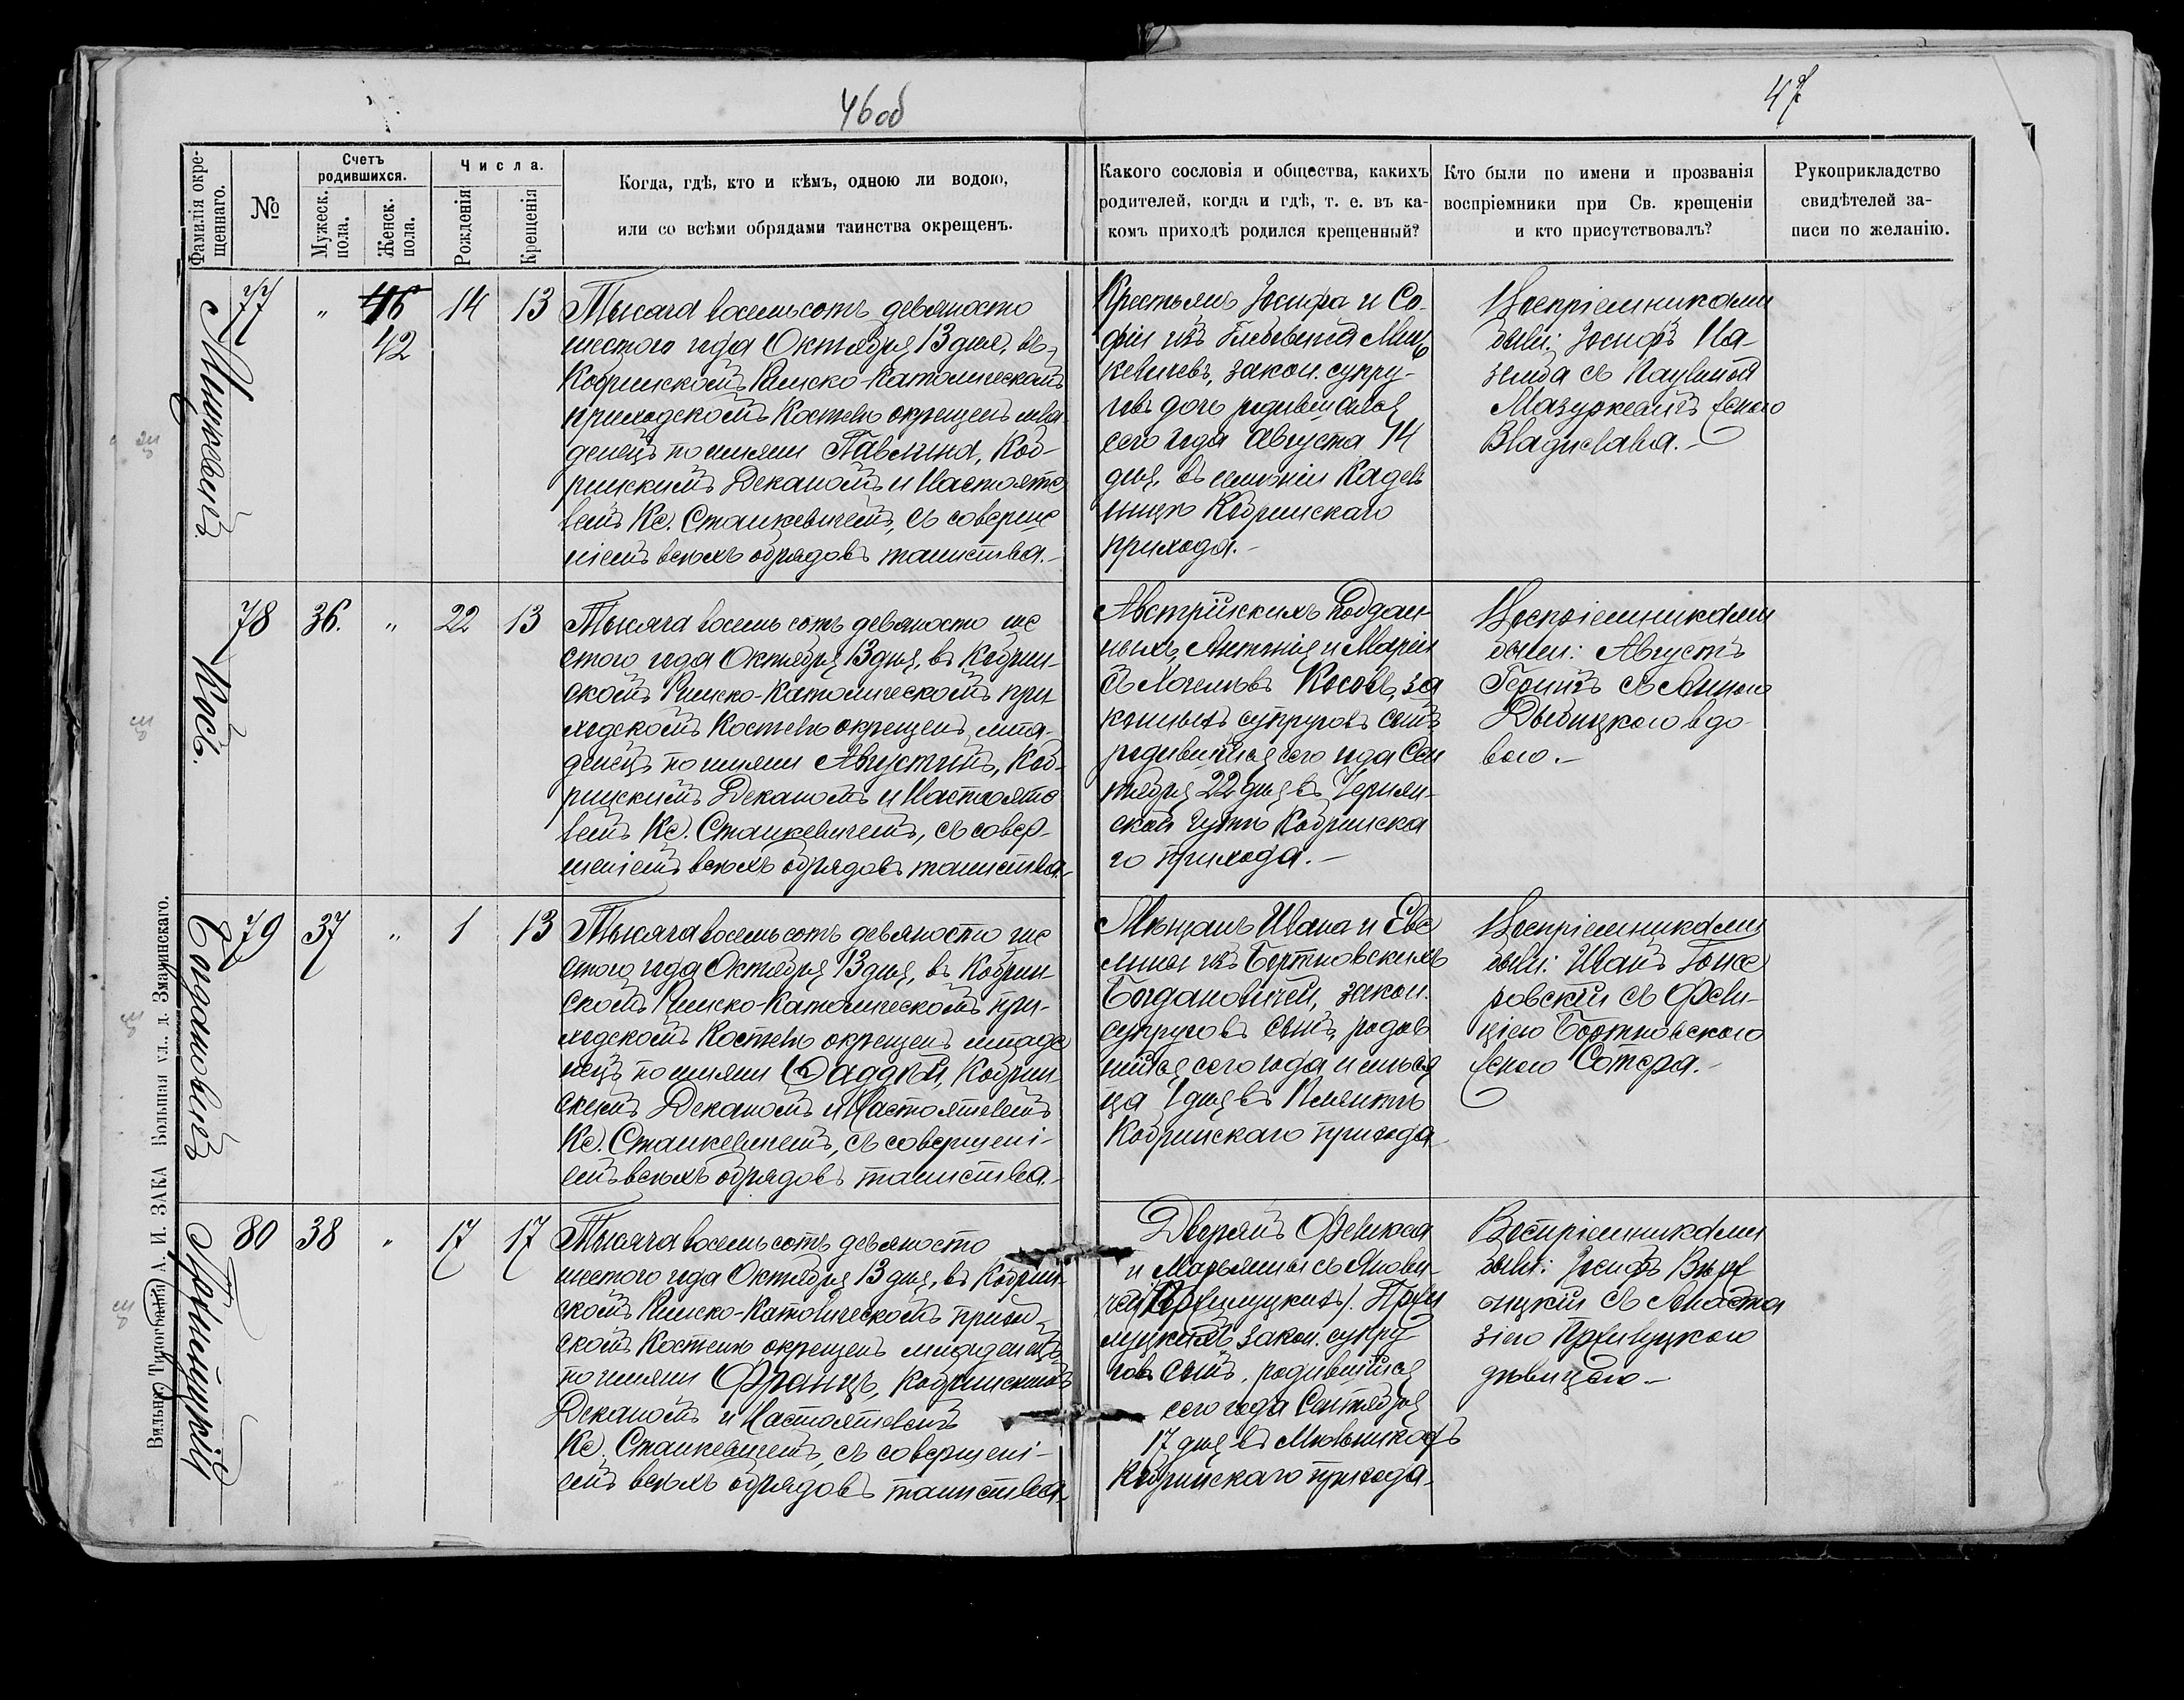 46об
47
Фамилія окре-
щеннаго.
№
Счетъ
родившихся.
Мужеск.
пола.
Женск.
пола.
Числа.
Рожденія
Крещенія
Когда, гдѣ, кто и кѣмъ, одною ли водою,
или со всѣми обрядами таинства окрещенъ.
Какого сословія и общества, какихъ
родителей, когда и гдѣ, т. е. въ ка-
комъ приходѣ родился крещенный?
Кто были по имени и прозванія
воспріемники при Св. крещеніи
и кто присутствовалъ?
Рукоприкладство
свидѣтелей за-
писи по желанію.
77 " 46 14 13
42
Тысяча восемьсотъ девяносто
шестого года Октября 13 дня, въ
Кобринскомъ Римско-Католическомъ
приходскомъ Костелѣ окрещенъ мла
денецъ по имени Павлина, Коб-
ринскимъ Деканомъ и Настояте
лемъ Кс. Станкевичемъ, съ соверше
ніемъ всѣхъ обрядовъ таинства.-
Крестьянъ Іосифа и Со-
фіи изъ
кевичевъ, закон. супру-
говъ дочь родившаяся
сего года Августа 14
дня, въ имѣніи
Кобринскаго
прихода.-
Воспріемниками
были: Іосифъ
съ Паулиной
женою
Владислава.-
78 36. " 22 13
Кось.
Тысяча восемь сотъ девяносто ше
стого года Октября 13 дня, въ Кобрин-
скомъ Римско-Католическомъ при-
ходскомъ Костелѣ окрещенъ мла-
денецъ по имени Августинъ, Коб-
ринскимъ Деканомъ и Настояте
лемъ Кс. Станкевичемъ, съ совер-
шеніемъ всѣхъ обрядовъ таинства.-
Австрійскихъ Поддан-
ныхъ, Антонія и Маріи
Косовъ, за
конныхъ супруговъ сынъ
родившійся сего года Сен
тября 22 дня въ
ской гутѣ Кобринска
го прихода.-
Воспріемниками
были: Августъ
съ Анною
вдо-
вою.-
79 37 " 1 13
Богдановичъ
Тысяча восемьсотъ девяносто ше
стого года Октября 13 дня, въ Кобрин
скомъ Римско-Католическомъ при-
ходскомъ Костелѣ окрещенъ младе
нецъ по имени Фаддей, Кобрин
скимъ Деканомъ и Настоятелемъ
Кс. Станкевичемъ, съ совершені-
емъ всѣхъ обрядовъ таинства.-
Мѣщанъ Ивана и
изъ Бортновскихъ
Богдановичей, закон.
супруговъ сынъ, родив
шійся сего года и мѣся
ца 1 дня въ
Кобринскаго прихода.-
Воспріемниками
были: Иванъ
съ Фели-
ціею Бортновскою
женою Сотера.-
80 38 " 17 17
Тысяча восемьсотъ девяносто
шестого года Октября 13 дня, въ Кобрин-
скомъ Римско-Католическомъ приход-
скомъ Костелѣ окрещенъ младенецъ
по имени Францъ, Кобринскимъ
Деканомъ и Настоятелемъ
Кс. Станкевичемъ, съ совершені-
емъ всѣхъ обрядовъ таинства.-
Дворянъ Феликса
и Марьянны съ
закон. супру
говъ сынъ, родившійся
сего года Сентября
17 дня въ
Кобринскаго прихода.-
Воспріемниками
были: Іосифъ
съ Анаста
зіею
дѣвицею.-
Вильна Типографія А. И. ЗАКА Большая ул. д.